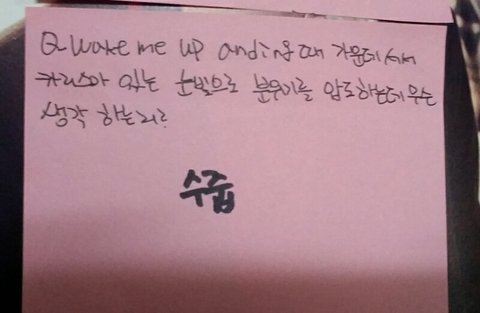 Q wake me up anding때 가운데서서
카리스마 있는 눈빛으로 분위기를 압도하는데 무슨
생각 하는지?
수줍